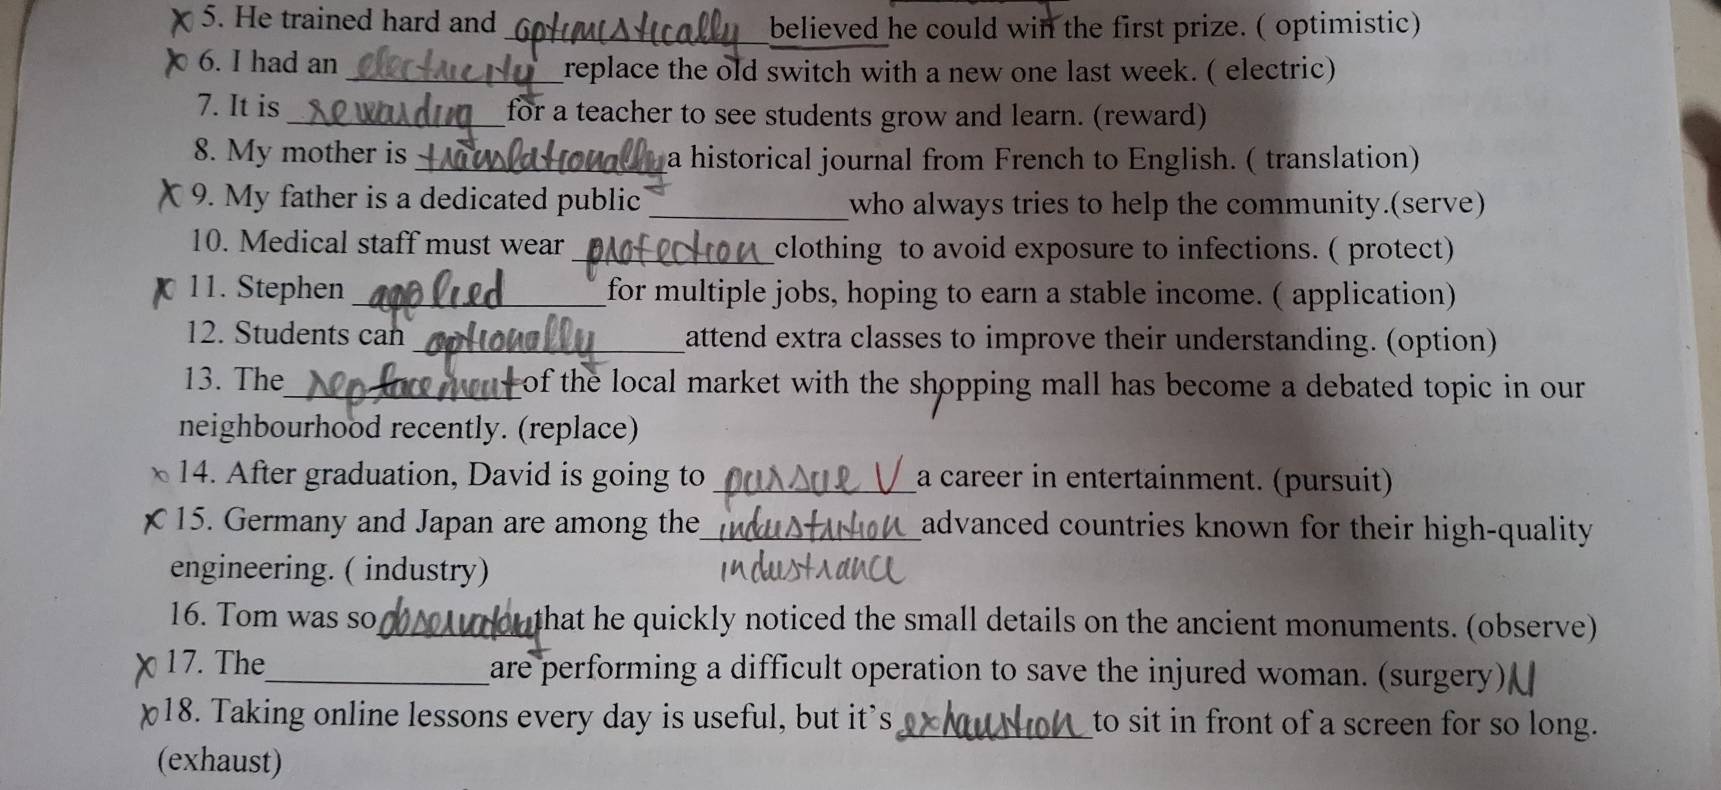 X 5. He trained hard and optimistically believed he could win the first prize. ( optimistic)
X 6. I had an electricity replace the old switch with a new one last week. ( electric)
7. It is rewarding for a teacher to see students grow and learn. (reward)
8. My mother is translationally a historical journal from French to English. ( translation)
X 9. My father is a dedicated public ____________ who always tries to help the community.(serve)
10. Medical staff must wear protection clothing to avoid exposure to infections. ( protect)
X 11. Stephen applied for multiple jobs, hoping to earn a stable income. ( application)
12. Students can optionally attend extra classes to improve their understanding. (option)
13. The replacement of the local market with the shopping mall has become a debated topic in our
neighbourhood recently. (replace)
x 14. After graduation, David is going to pursue a career in entertainment. (pursuit)
X 15. Germany and Japan are among the industrtion advanced countries known for their high-quality
engineering. ( industry)
industrance
16. Tom was so that he quickly noticed the small details on the ancient monuments. (observe)
X 17. The ____________ are performing a difficult operation to save the injured woman. (surgery) N
x 18. Taking online lessons every day is useful, but it's exhaustion to sit in front of a screen for so long.
(exhaust)